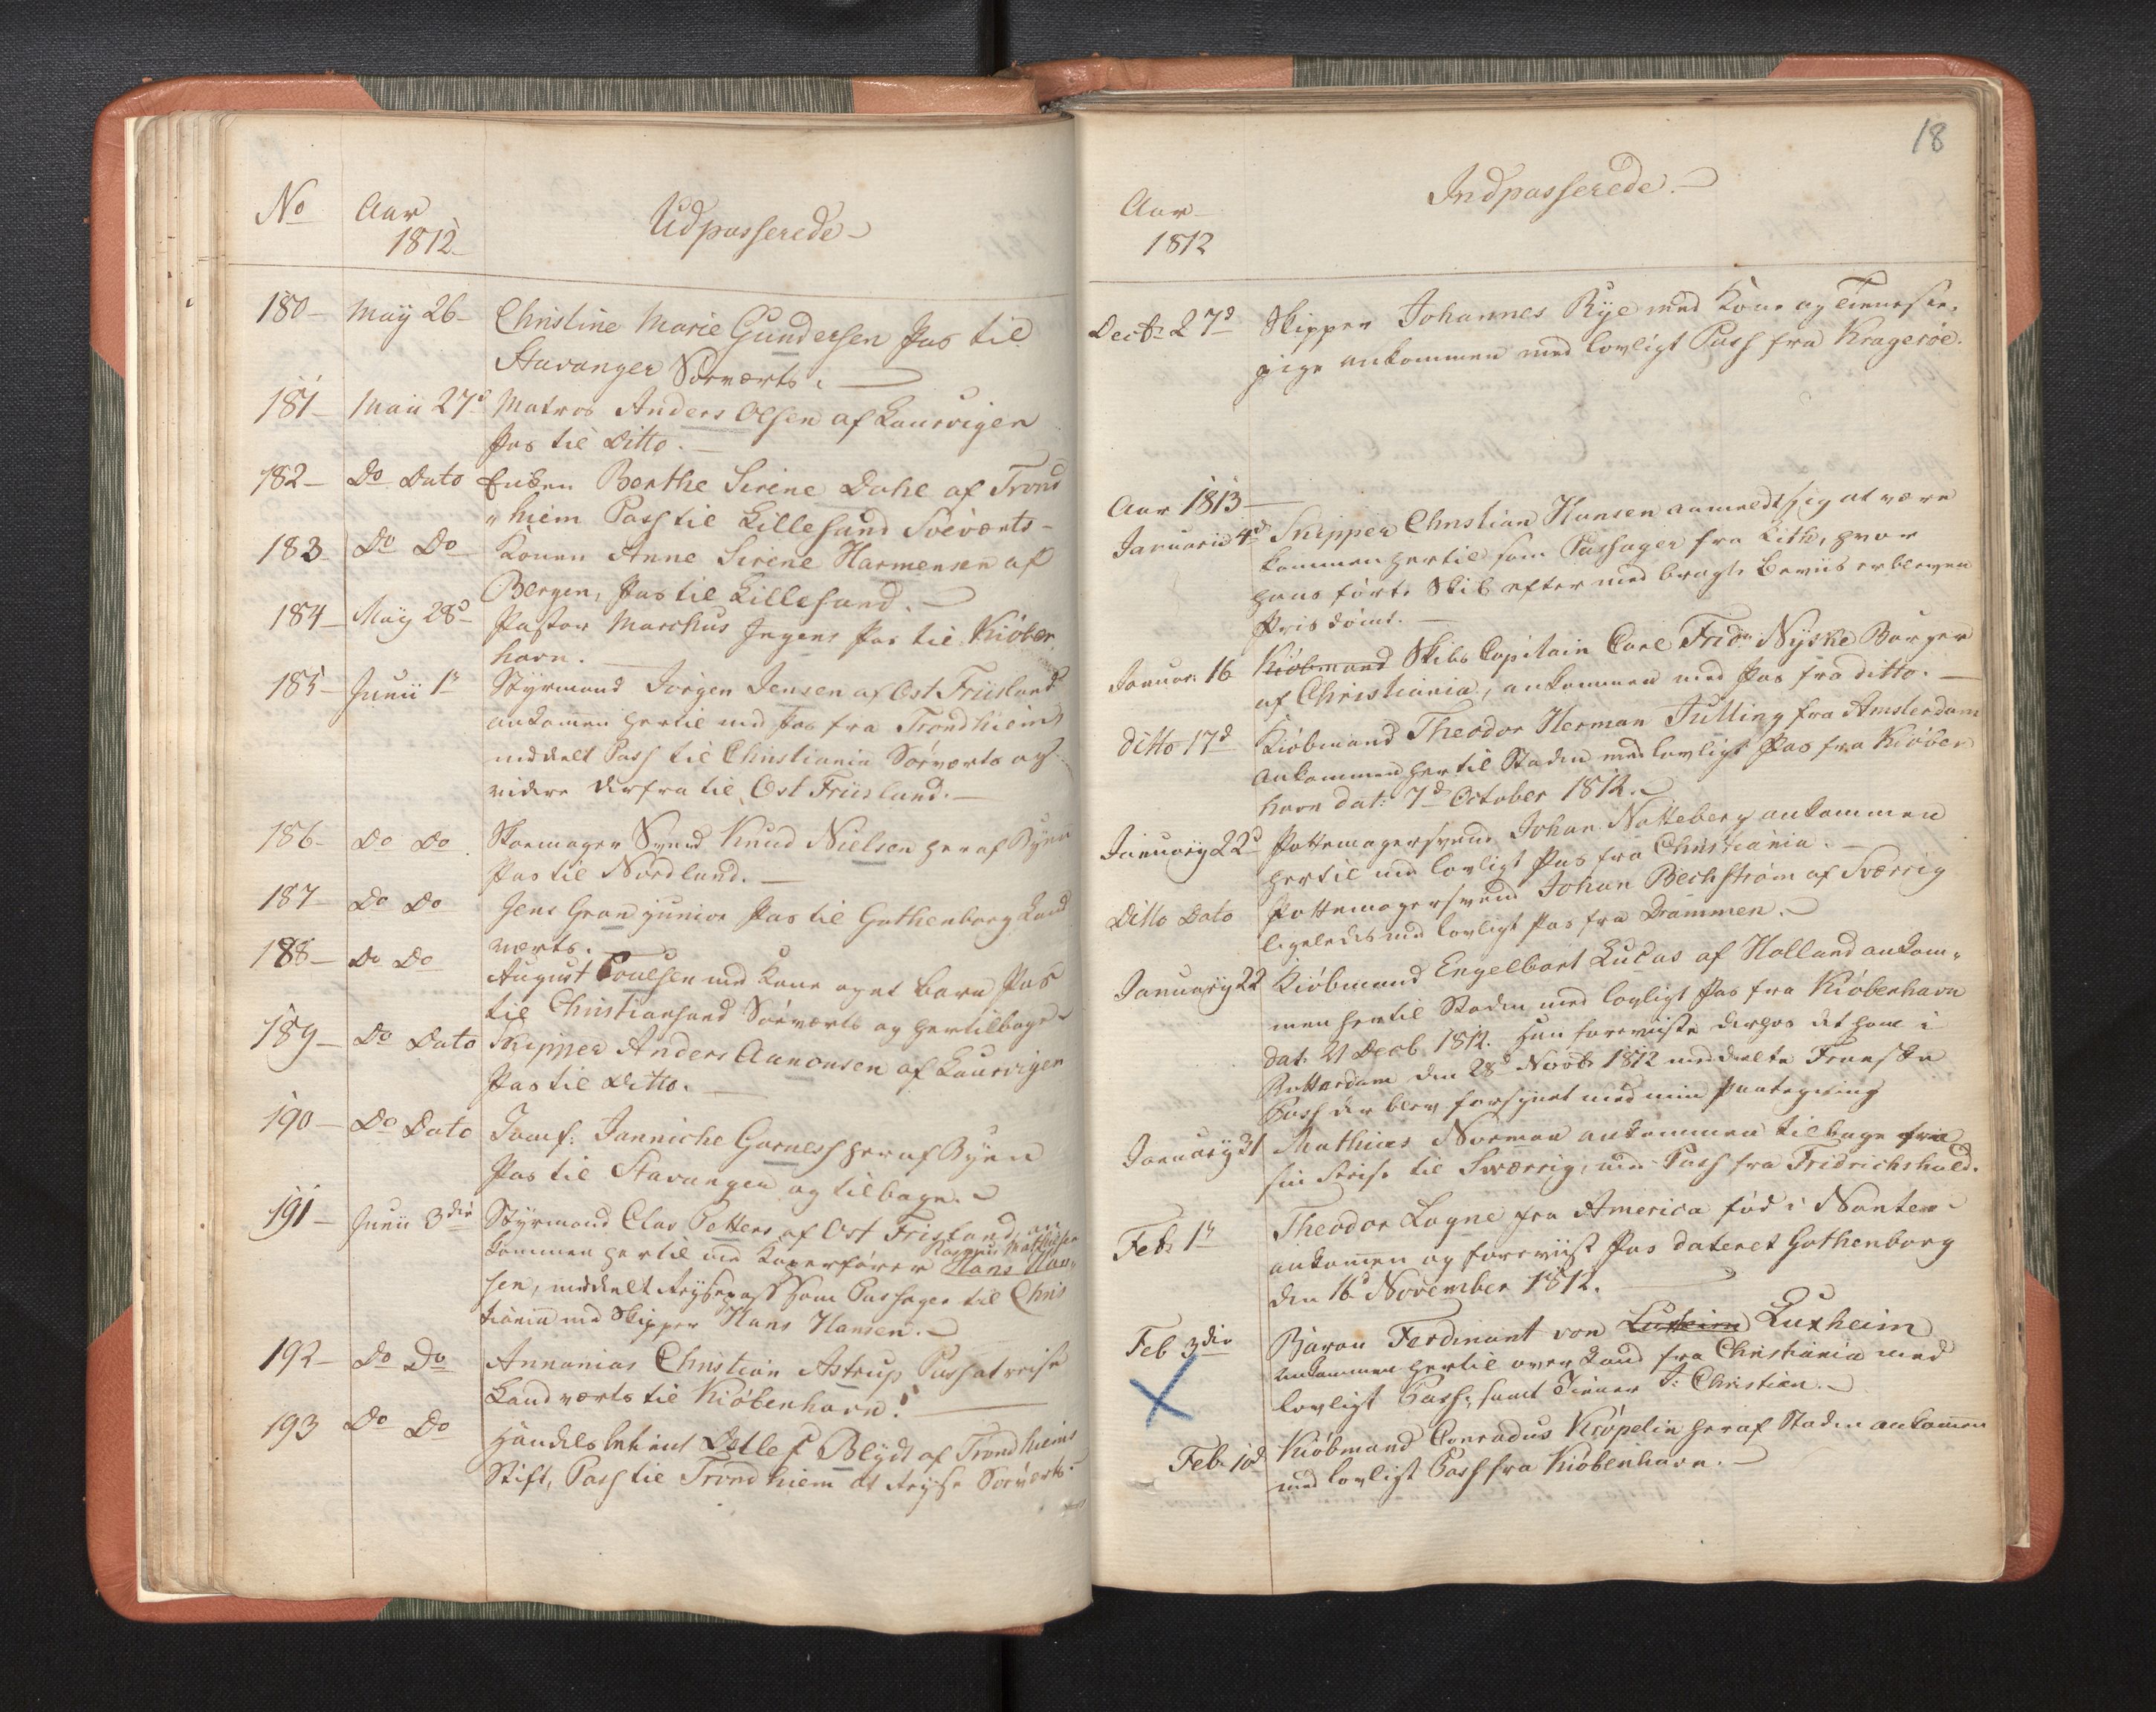 No Aar Udpasserede
1812
180 Maÿ 26 Christine Marie Gundersen Pas til
Stavanger Söeværts.
181 Maii 27d Matros Anders Olsen af Laurvigen
Pas til Ditto.
182 Do Dato Enken Berthe Sirene Dahl af Trond
hiem Pass til Lillesand Söeværts
183 Do Do Konen Anne Sirene Harmensen af
Bergen, Pas til Lillesand.
184 Maÿ 28d Pastor Marchus Pas til Kiöben
havn.
185 Junii 1n Styrmand Jörgen Jensen af Ost Friisland
ankommen hertil med Pas fra Trondhiem
meddelt Pass til Christiania Söeværts og
videre derfra til Ost Friisland.
186 Do Do Skomager Svend Knud Nielsen her af Byen
Pas til Nordland.
187 Do Do Jens Gran junior Pas til Gothenborg Land
værts.
188 Do Do August Poulsen med Kone og et Barn Pas
til Christiansand Söeværts og her tilbage
189 Do Dato Skipper Anders Aanonsen af Laurvigen
Pas til Ditto.
190 Do Dato Jomf: Janniche Garness her af Byen
Pas til Stavanger og tilbage.
191 Junii 3die Styrmand Clas Petters af Ost Frisland, an
Rasmus Mathiesen
kommen hertil med Kaperförer Hans Han
sen, meddelt Reysepass som Passager til Chris
tiania med Skipper Hans Hansen.
192 Do Do Annanias Christian Astrup Pass at reise
Landværts til Kiöbenhavn.
193 Do Do Handelsbetient Detlef Blÿdt af Trondhiems
Stift, Pass til Trondhiem at Reyse Söeværts.
18
Aar Indpasserede.
1812
Decbr 27d Skipper Johannes Rÿe med Kone og Tieneste
pige ankommen med lovligt Pass fra Krageröe.
Aar 1813
Januarii 4d Skipper Christian Hansen anmeldt sig at være
kommen hertil som Passager fra Lith, hvor
hans förte Skib efter med bragte Beviis er bleven
Priisdömt.
Januar: 16 Kiöbmand Skibs Capitain Carl Fridr: Nÿske Borger
af Christiania, ankommen med Pas fra ditto.
ditto 17d Kiöbmand Theodor Herman Tulling fra Amsterdam
ankommen her til Staden med lovligt Pas fra Kiöben
havn dat: 7d October 1812.
Januarÿ 22d Pottemagersvend Johan Notteberg ankommen
hertil med lovligt Pas fra Christiania.
Ditto Dato Pottemagersvend Johan Bechström af Sverrig
ligeledes med lovligt Pas fra Drammen.
Januarÿ 22 Kiöbmand Engelbart Lucas af Holland ankom
men her til Staden med lovligt Pas fra Kiöbenhavn
dat. 21 Decb. 1812. Han foreviiste derhos det ham i
Rotterdam den 28d Novbr 1812 meddelte Franske
Pass der blev forsynet med min Paategning
Januarÿ 31 Mathias Norman ankommen tilbage fra
sin Reise til Sverrig, med Pass fra Fridrichshald.
Feb: 1n Theodor Layne fra America föd i Nantes
ankommen og foreviist Pas dateret Gothenborg
den 16d November 1812.
Feb 3die Baron Ferdinant von Luxheim Luxheim
ankommen hertil over Land fra Christiania med
lovligt Pass, samt Tiener J: Christian.
Feb: 10d Kiöbmand Conradus Kröpelin her af Staden ankommen
med lovligt Pass fra Kiöbenhavn.